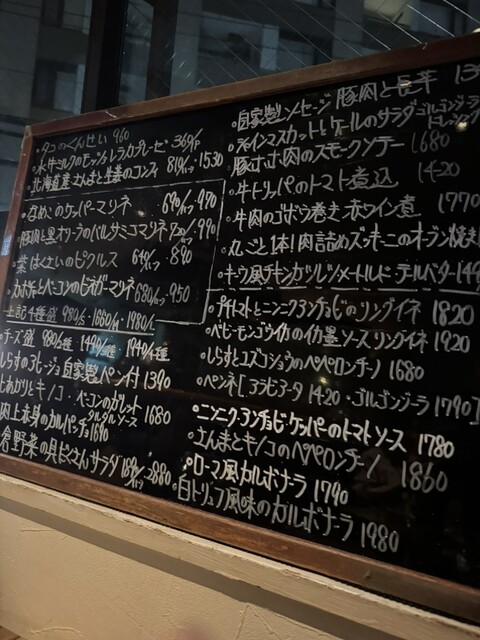 ・タコのくんせい 960
・水牛ミルクのモッツァレラカプレーゼ 369/P
・北海道産さんまと生姜のコンフィ 810/ハーフ・1530
・なめこのケッパーマリネ 890/ハーフ・970
・豚肉と黒オリーブのバルサミコマリネ 990
・葉はくさいのピクルス ハーフ・890
・カボチャとベーコンのビネガーマリネ 680/ハーフ・950
上記4種盛 980/S・1660/M・1980/L
チーズ盛 980/2種・1490/3種・1990/4種
しらすのフリージョ 自家製パン付 1390
キノコ・ベーコンのガレット 1680
タルタルソース
肉上赤身のカルパッチョ 1690
倉野菜の具だくさんサラダ ・2880
・自家製ソーセージ 豚肉と長芋
・シャインマスカットとケールのサラダ ゴルゴンゾーラドレッシング
・豚ホホ肉のスモークソテー 1680
・牛トリッパのトマト煮込 1420
・牛肉のゴボウ巻き 赤ワイン煮 1770
・丸ごと1本!肉詰めズッキーニのオーブン焼き
・キウ風チキンカツレツ メートルドテルバター 149
・プチトマトとニンニク アンチョビのリングイネ 1820
・ベビーモンゴウイカのイカ墨ソース リングイネ 1920
・しらすとユズコショウのペペロンチーノ 1680
・ペンネ[アラビアータ 1420・ゴルゴンゾーラ 1790]
・ニンニク・アンチョビ・ケッパーのトマトソース 1780
・さんまとキノコのペペロンチーノ 1860
・ローマ風カルボナーラ 1790
・白トリュフ風味のカルボナーラ 1980